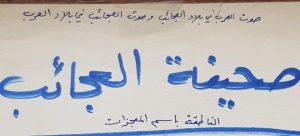 صوت العرب في بلاد العجائب وصوت العجائب في بلاد العرب
صحيفة العجائب
الناطقة باسم المعجزات